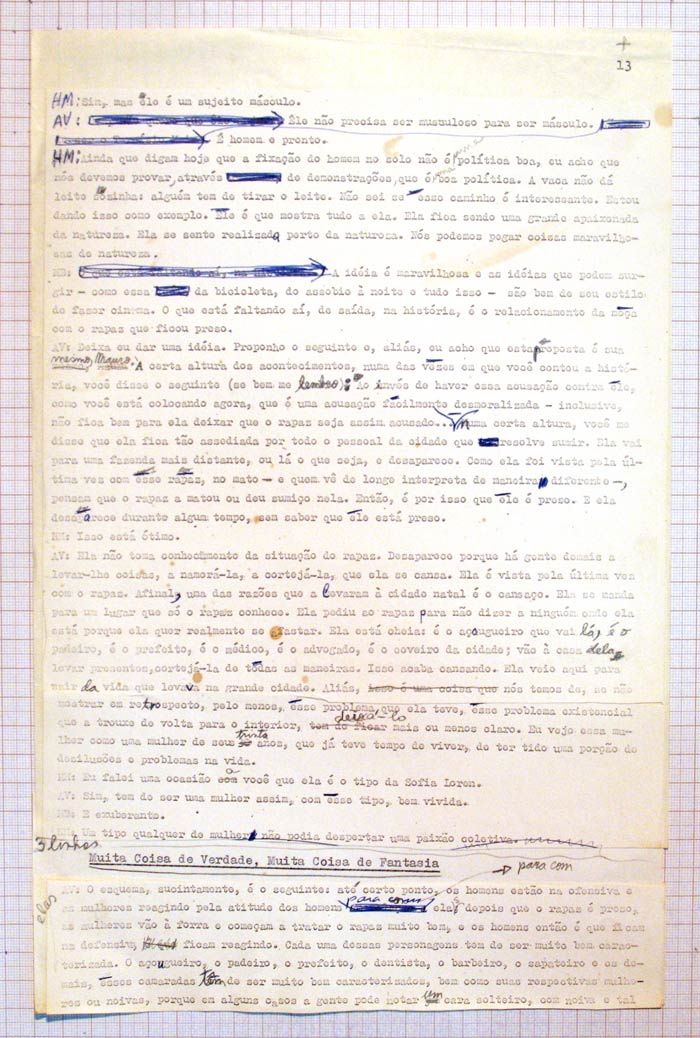 +
13
HM: Sim, mas êle é um sujeito másculo.
AV: Êle não precisa ser musculoso para ser másculo.
É homem e pronto.
HM: Ainda que digam hoje que a fixação do homem no solo não é uma política boa, eu acho que
nós devemos provar, através de demonstrações, que é uma boa política. A vaca não dá
leite sozinha: alguém tem de tirar o leite. Não sei se esse caminho é interessante. Estou
dando isso como exemplo. Ele é que mostra tudo a ela. Ela fica sendo uma grande apaixonada
da natureza. Ela se sente realizada perto da natureza. Nós podemos pegar coisas maravilho-
sas de natureza.
A idéia é maravilhosa e as idéias que podem sur-
gir - como essa da bicicleta, do assobio à noite e tudo isso - são bem de seu estilo
de fazer cinema. O que está faltando aí, de saída, na história, é o relacionamento da moça
com o rapaz que ficou preso.
AV: Deixa eu dar uma idéia. Proponho o seguinte e, aliás, eu acho que esta proposta é sua
mesmo, Mauro. A certa altura dos acontecimentos, numa das vezes em que você contou a histó-
ria, você disse o seguinte (se bem me lembro): Ao invés de haver essa acusação contra êle,
como você está colocando agora, que é uma acusação fàcilmente desmoralizada - inclusive,
não fica bem para ela deixar que o rapaz seja assim acusado... numa certa altura, você me
disse que ela fica tão assediada por todo o pessoal da cidade que resolve sumir. Ela vai
para uma fazenda mais distante, ou lá o que seja, e desaparece. Como ela foi vista pela úl-
tima vez com esse rapaz, no mato - e quem vê de longe interpreta de maneira diferente -,
pensam que o rapaz a matou ou deu sumiço nela. Então, é por isso que ele é preso. E ela
desaparece durante algum tempo, sem saber que ele está preso.
HM: Isso está ótimo.
AV: Ela não toma conhecimento da situação do rapaz. Desaparece porque há gente demais a
levar-lhe coisas, a namorá-la, a cortejá-la, que ela se cansa. Ela é vista pela última vez
com o rapaz. Afinal, uma das razões que a levaram à cidade natal é o cansaço. Ela se manda
para um lugar que só o rapaz conhece. Ela pediu ao rapaz para não dizer a ninguém onde ela
está porque ela quer realmente se afastar. Ela está cheia: é o açougueiro que vai lá, é o
padeiro, é o prefeito, é o médico, é o advogado, é o coveiro da cidade; vão à casa dela
levar presentes, cortejá-la de todas as maneiras. Isso acaba cansando. Ela veio aqui para
sair da vida que levava na grande cidade. Aliás, isso é uma coisa que nós temos de, se não
mostrar em retrospecto, pelo menos, esse problema que ela teve, esse problema existencial
que a trouxe de volta para o interior, tem de ficar deixá-lo mais ou menos claro. Eu vejo essa mu-
lher como uma mulher de seus trinta anos, que já teve tempo de viver, de ter tido uma porção de
desilusões e problemas na vida.
HM: Eu falei uma ocasião a você que ela é o tipo da Sofia Loren.
AV: Sim, tem de ser uma mulher assim, com esse tipo, bem vivida.
E exuberante.
Um tipo qualquer de mulher não podia despertar uma paixão coletiva.
linhas
Muita Coisa de Verdade, Muita Coisa de Fantasia
para com
AV: O esquema, sucintamente, é o seguinte: até certo ponto, os homens estão na ofensiva e
elas
as mulheres reagindo pela atitude dos homens para com elas; depois que o rapaz é preso,
as mulheres vão à forra e começam a tratar o rapaz muito bem, e os homens então é que ficam
na defensiva, ficam reagindo. Cada uma dessas personagens tem de ser muito bem carac-
terizada. O açougueiro, o padeiro, o prefeito, o dentista, o barbeiro, o sapateiro e os de-
mais, êsses camaradas têm de ser muito bem caracterizados, bem como suas respectivas mulhe-
res ou noivas, porque em alguns casos a gente pode botar um cara solteiro, com noiva e tal